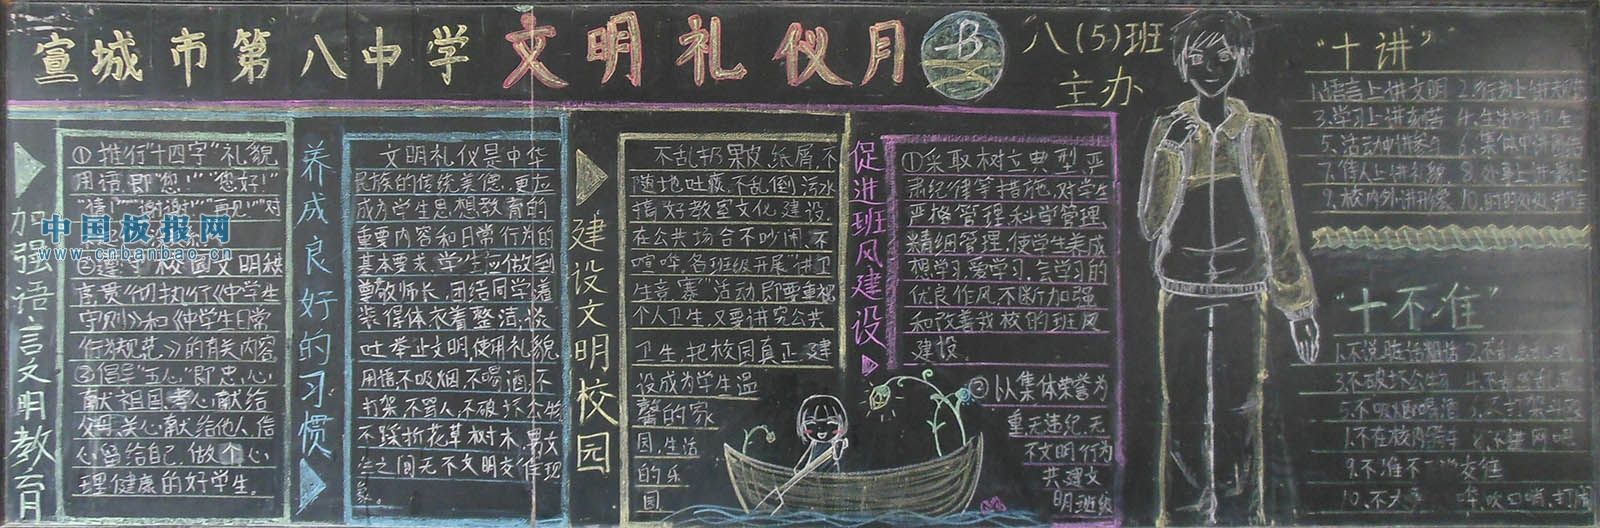 宣城市第八中学文明礼仪月
B
八(5)班
主办
加强语言文明教育
①推行"十四字"礼貌
用语,即"您!""您好!"
"请""谢谢""再见!"对
中国板报网
www.cnbanbao.cn
②遵守校园文明规
言贯彻执行《中学生
守则》和《中学生日常
行为规范》的有关内容
③倡导"五心"即忠心
献祖国,孝心献给
父母,关心献给他人,信
心留给自己,做个心
理健康的好学生。
养成良好的习惯
文明礼仪是中华
民族的传统美德,更应
成为学生思想教育的
重要内容和日常行为的
基本要求,学生应做到
尊敬师长,团结同学,着
装得体,衣着整洁,谈
吐举止文明,使用礼貌
用语,不吸烟,不喝酒,不
打架,不骂人,不破坏公物
不踩折花草树木,男女
生之间无不文明交往现
象。
建设文明校园
不乱扔果皮、纸屑,不
随地吐痰,不乱倒污水
搞好教室文化建设,
在公共场合不吵闹、不
喧哗。各班级开展"讲卫
生竞赛"活动,即要重视
个人卫生,又要讲究公共
卫生,把校园真正建
设成为学生温
馨的家
园,生活
的乐
园
促进班风建设
①采取树立典型,严
肃纪律等措施,对学生
严格管理,科学管理,
精细管理,使学生养成
想学习,爱学习,会学习的
优良作风,不断加强
和改善我校的班风
建设。
②以集体荣誉为
重无违纪,无
不文明行为
共建文
明班级
"十讲"
1.语言上讲文明 2.行为上讲规范
3.学习上讲刻苦 4.生活中讲卫生
5.活动中讲参与 6.集体中讲团结
7.待人上讲礼貌 8.
9.校内外讲形象 10.
"十不准"
1.不说脏话粗话 2.不
3.不破坏公物 4.不
5.不吸烟喝酒 6.不打架
7.不在校内骑车 8.不进网吧
9.不准不正常交往
10.不大声 哗,吹口哨,打闹